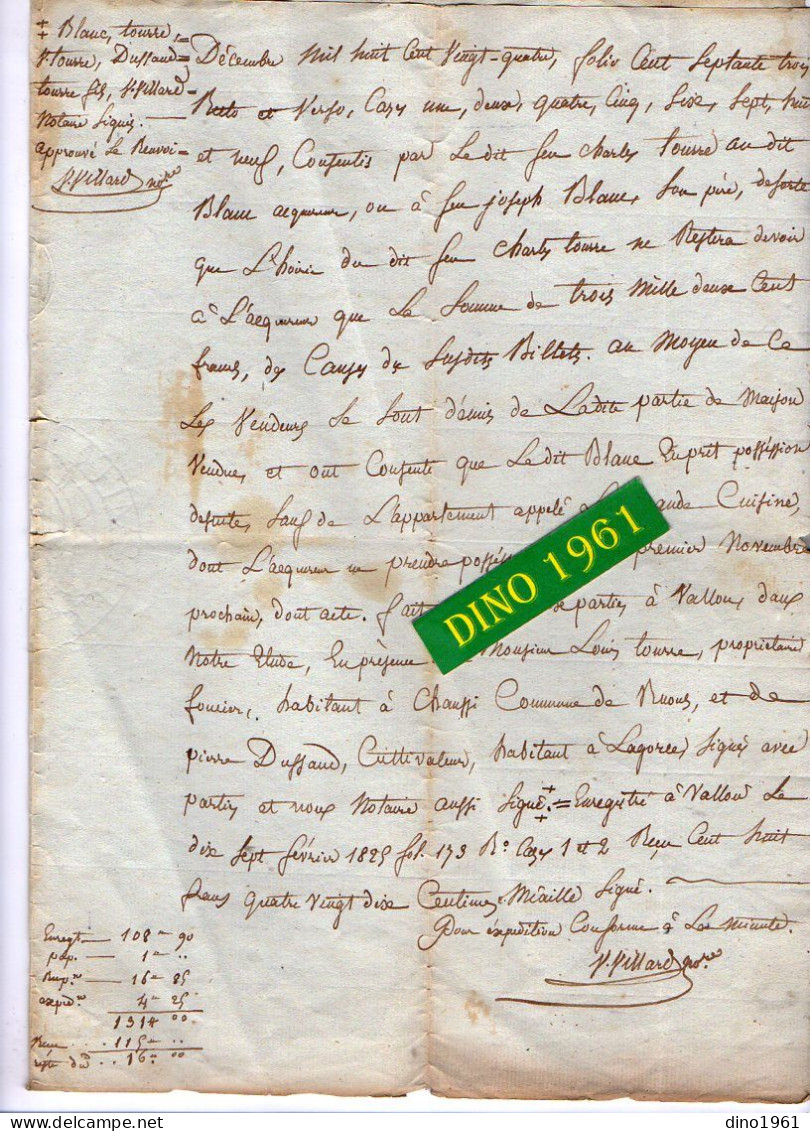 ‡ Blanc, tourre,
V. tourre, Dussaud
tourre fils, V. Villard
Notaire signés.
approuvé Le Renvoi
V. Villard nore
Décembre mil huit Cent Vingt-quatre, folio Cent septante trois
Recto et Verso, Cases une, deux, quatre, Cinq, Six, Sept, huit
et neuf, Consentis par Le dit feu charles tourre au dit
Blanc acquereur, ou à feu joseph Blanc, Son père, desorte
que L'hoirie du dit feu charles tourre ne Restera devoir
à L'acquereur que La Somme de trois Mille deux Cent
francs, des Causes des Susdits Billets. au Moyen de Ce
Les Vendeurs Se Sont démis de Ladite partie de Maison
Vendue, et ont Consenti que Le dit Blanc En prit possession
desuite, Sauf de L'appartement appelé La Cuisine,
dont L'acquereur ne prendra premier Novembre
prochain, dont acte. fait parties à Vallon, dans
Notre Etude, En présence Monsieur Louis tourre, propriétaire
foncier, habitant à Chaussi Commune de Ruoms, et de
pierre Dussaud, Cultivateur, habitant à Lagorce, Signés avec
parties et nous Notaire aussi Signé. ‡ = Enregistré à Vallon Le
dix Sept février 1825 fol. 173 Ro. Cases 1 et 2 Reçu Cent huit
francs quatre vingt dix Centimes, Signé.
Pour expédition Conforme à La minute.
V. Villard nore.
Enregt — 108 = 90
pap. — 1 = ..
Rep.re — 16 = 85
expedon 4 = 25
131 = 00
Reçu .. 115 = ..
reste dû .. 16 = 00
DINO 1961
dino1961